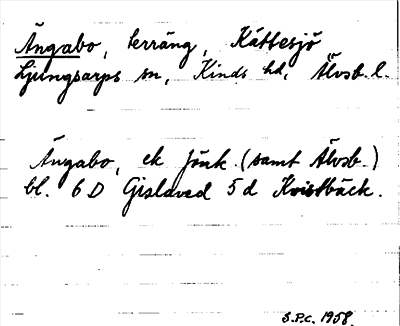 Ängabo, terräng, Kättesjö
Ljungsarps sn, Kinds hd, Älvsb. l.
Ängabo, ek Jönk. (samt Älvsb.)
bl. 6 D Gislaved 5 d Kvistbäck.
S.P.C. 1958.